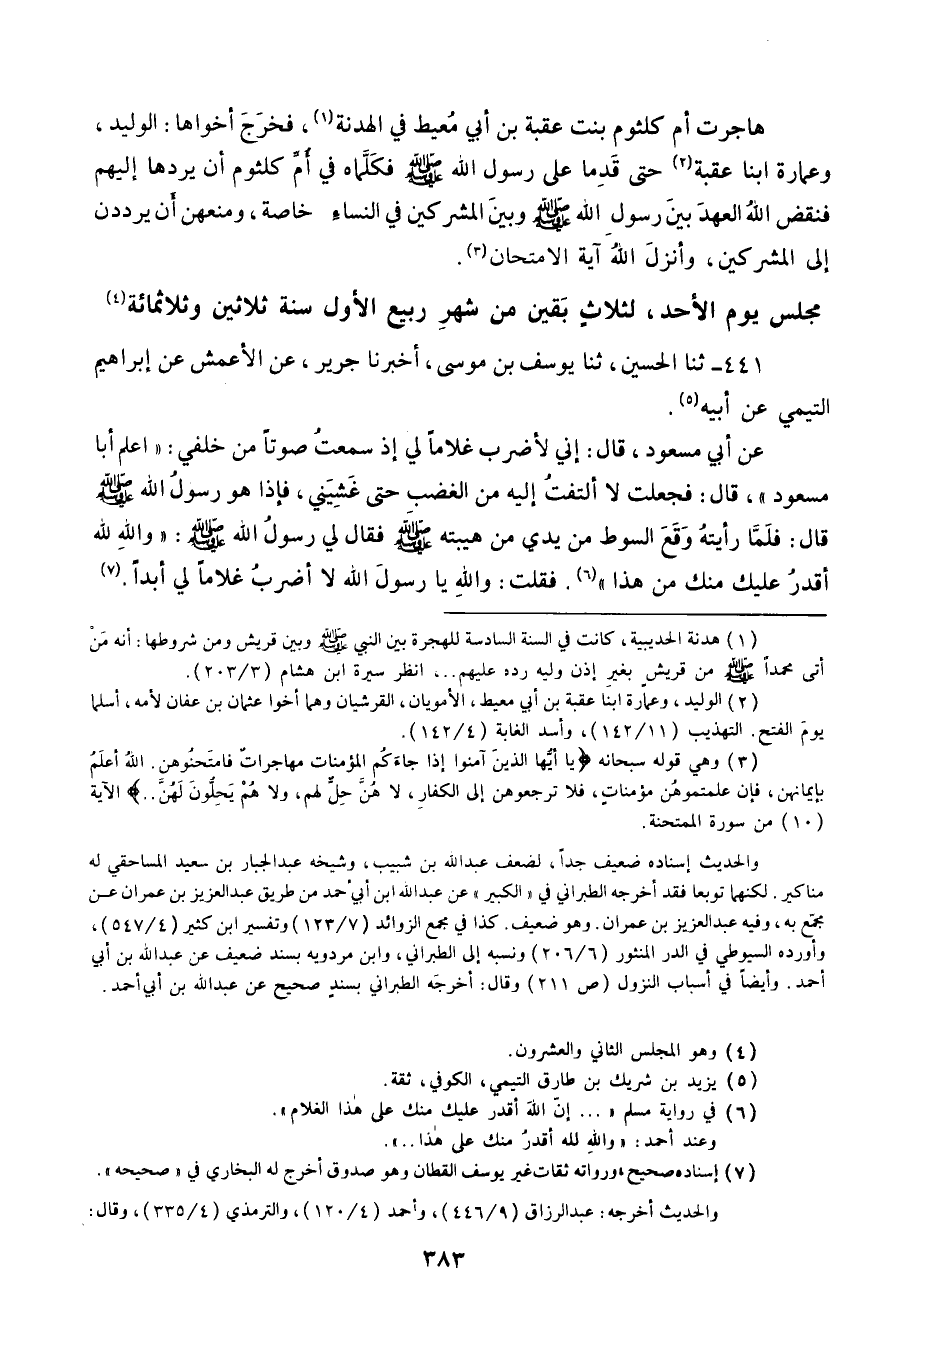 هاجرت أم كلثوم بنت عقبة بن أبي مُعيط في الهدنة(١)، فخرَجَ أخواها: الوليد،
وعمارة ابنا عقبة(٢) حتى قَدِما على رسول الله ﷺ فكلَّماه في أُمِّ كلثوم أن يردها إليهم
فنقض اللهُ العهدَ بينَ رسولِ الله ﷺ وبينَ المشركين في النساء خاصة، ومنعهن أَن يرددن
إلى المشركين، وأنزلَ اللهُ آية الامتحان(٣).
مجلس يوم الأحد، لثلاثٍ بَقين من شهرِ ربيع الأول سنة ثلاثين وثلاثمائة(٤)
٤٤١ـ ثنا الحسين، ثنا يوسف بن موسى، أخبرنا جرير، عن الأعمش عن إبراهيم
التيمي عن أبيه(٥).
عن أبي مسعود، قال: إني لأضرب غلاماً لي إذ سمعتُ صوتاً من خلفي: « اعلم أبا
مسعود »، قال: فجعلت لا ألتفتُ إليه من الغضبِ حتى غَشِيَني، فإذا هو رسولُ الله ﷺ
قال: فلَمَّا رأيتهُ وَقَعَ السوط من يدي من هيبته ﷺ فقال لي رسولُ الله ﷺ: « واللهِ لله
أقدرُ عليك منك من هذا »(٦). فقلت: واللهِ يا رسولَ الله لا أضربُ غلاماً لي أبداً.(٧)
(١) هدنة الحديبية، كانت في السنة السادسة للهجرة بين النبي ﷺ وبين قريش ومن شروطها: أنه مَنْ
أتى محمداً ﷺ من قريش بغيرِ إذن وليه رده عليهم...، انظر سيرة ابن هشام (٢٠٣/٣).
(٢) الوليد، وعمارة ابنا عقبة بن أبي معيط، الأمويان، القرشيان وهما أخوا عثمان بن عفان لأمه، أسلما
يومَ الفتح. التهذيب (١٤٢/١١)، وأسد الغابة (١٤٢/٤).
(٣) وهي قوله سبحانه ﴿يا أيُّها الذينَ آمنوا إذا جاءَكُم المؤمنات مهاجراتٌ فامتَحنُوهن. اللهُ أعلَمُ
بإيمانهن، فإن علمتموهُن مؤمناتٍ، فلا ترجعوهن إلى الكفارِ، لا هُنَّ حِلٌّ لهم، ولا هُمْ يَحِلُّونَ لَهُنَّ..﴾ الآية
(١٠) من سورة الممتحنة.
والحديث إسناده ضعيف جداً، لضعف عبدالله بن شبيب، وشيخه عبدالجبار بن سعيد المساحقي له
مناكير. لكنهما توبعا فقد أخرجه الطبراني في « الكبير » عن عبدالله ابن أبي أحمد من طريق عبدالعزيز بن عمران عـن
مجمّع به، وفيه عبدالعزيز بن عمران. وهو ضعيف. كذا في مجمع الزوائد (١٢٣/٧) وتفسير ابن كثير (٥٤٧/٤)،
وأورده السيوطي في الدر المنثور (٢٠٦/٦) ونسبه إلى الطبراني، وابن مردويه بسند ضعيف عن عبدالله بن أبي
أحمد. وأيضاً في أسباب النزول (ص ٢١١) وقال: أخرجَه الطبراني بسندٍ صحيح عن عبدالله بن أبي أحمد.
(٤) وهو المجلس الثاني والعشرون.
(٥) يزيد بن شريك بن طارق التيمي، الكوفي، ثقة.
(٦) في رواية مسلم « ... إنّ اللهَ أقدر عليك منك على هٰذا الغلام».
وعند أحمد: «واللهِ لله أقدرُ منك على هٰذا..».
(٧) إسناده صحيح، ورواته ثقات غير يوسف القطان وهو صدوق أخرج له البخاري في « صحيحه ».
والحديث أخرجه: عبدالرزاق (٤٤٦/٩)، وأحمد (١٢٠/٤)، والترمذي (٣٣٥/٤)، وقال:
٣٨٣